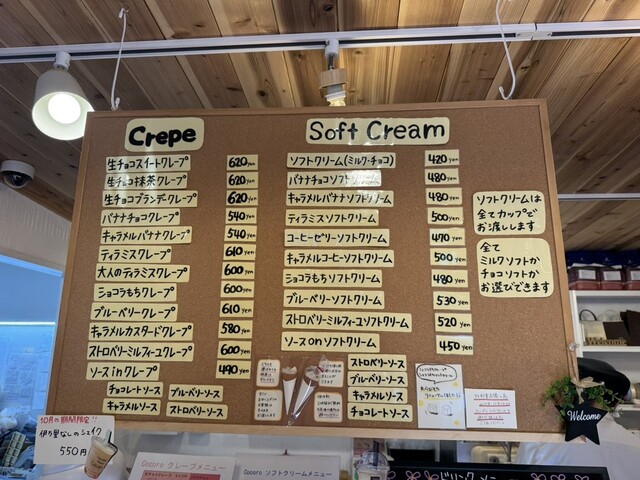 Crepe
生チョコスイートクレープ 620yen
生チョコ抹茶クレープ 620yen
生チョコブランデークレープ 620yen
バナナチョコクレープ 540yen
キャラメルバナナクレープ 540yen
ティラミスクレープ 610yen
大人のティラミスクレープ 600yen
ショコラもちクレープ 600yen
ブルーベリークレープ 610yen
キャラメルカスタードクレープ 580yen
ストロベリーミルフィーユクレープ 600yen
ソースinクレープ 490yen
チョコレートソース ブルーベリーソース
キャラメルソース ストロベリーソース
Soft Cream
ソフトクリーム(ミルク・チョコ) 420yen
バナナチョコソフトクリーム 480yen
キャラメルバナナソフトクリーム 480yen
ティラミスソフトクリーム 500yen
コーヒーゼリーソフトクリーム 470yen
キャラメルコーヒーソフトクリーム 500yen
ショコラもちソフトクリーム 480yen
ブルーベリーソフトクリーム 530yen
ストロベリーミルフィーユソフトクリーム 520yen
ソースonソフトクリーム 450yen
ストロベリーソース
ブルーベリーソース
キャラメルソース
チョコレートソース
ソフトクリームは
全てカップで
お渡しします
全て
ミルクソフトか
チョコソフトか
お選びできます
Welcome
10月の期間限定!!
伊り栗なのシェイク
550円
Gocoro クレープメニュー
Gocoro ソフトクリームメニュー
ドリンクメニ